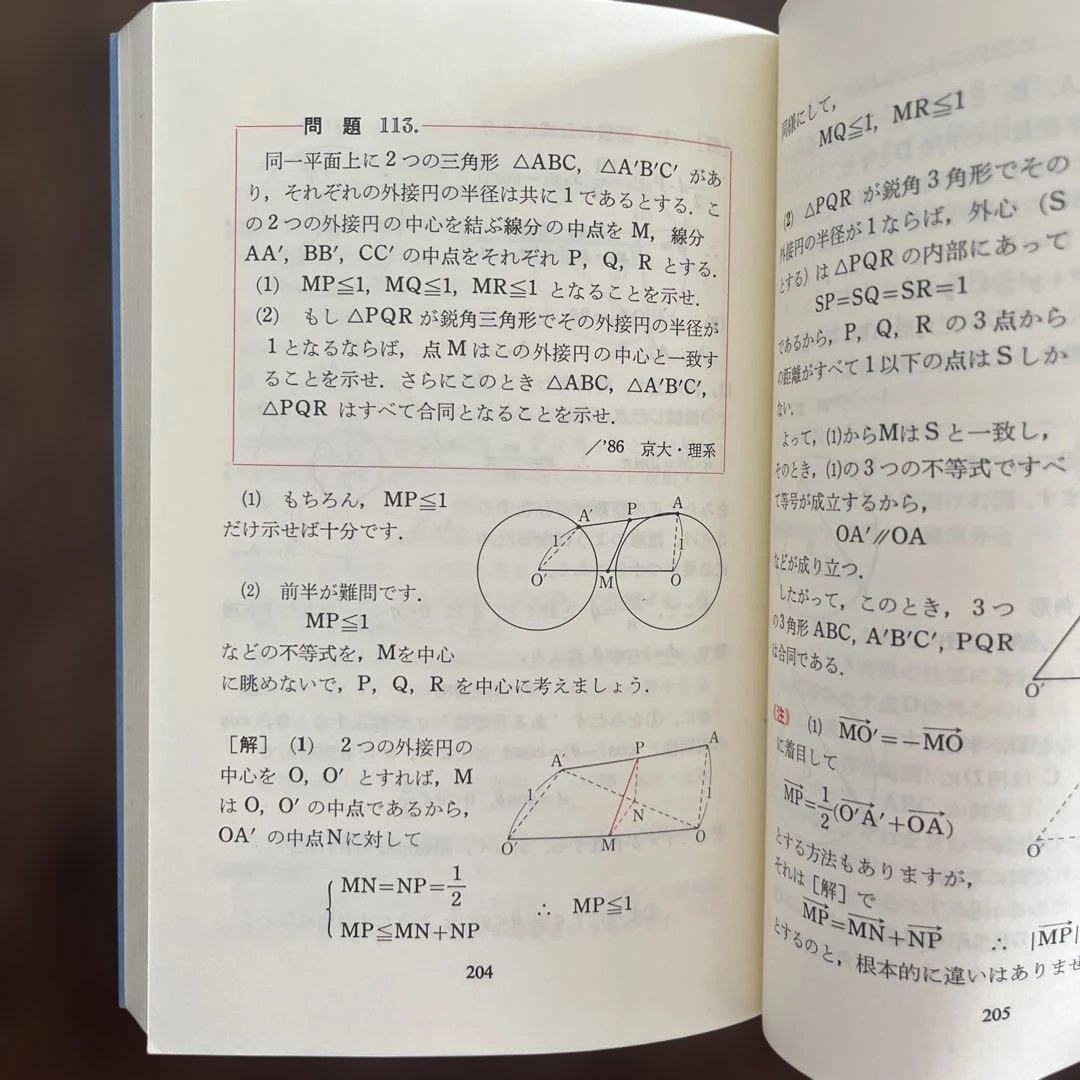 問題 113.
同一平面上に2つの三角形 △ABC, △A′B′C′ があ
り, それぞれの外接円の半径は共に1であるとする. こ
の2つの外接円の中心を結ぶ線分の中点を M, 線分
AA′, BB′, CC′ の中点をそれぞれ P, Q, R とする.
(1) MP≦1, MQ≦1, MR≦1 となることを示せ.
(2) もし △PQR が鋭角三角形でその外接円の半径が
1となるならば, 点 M はこの外接円の中心と一致す
ることを示せ. さらにこのとき △ABC, △A′B′C′,
△PQR はすべて合同となることを示せ.
/'86 京大・理系
(1) もちろん, MP≦1
だけ示せば十分です.
A′ P A
1 1
O′ M O
(2) 前半が難問です.
MP≦1
などの不等式を, Mを中心
に眺めないで, P, Q, R を中心に考えましょう.
[解] (1) 2つの外接円の
中心を O, O′ とすれば, M
は O, O′ の中点であるから,
OA′ の中点Nに対して
A′ P A
1 N 1
O′ M O
MN=NP=1/2
MP≦MN+NP
∴ MP≦1
204
同様にして,
MQ≦1, MR≦1
(2) △PQR が鋭角3角形でその
外接円の半径が1ならば, 外心 (S
とする) は △PQR の内部にあって
SP=SQ=SR=1
であるから, P, Q, R の3点から
の距離がすべて1以下の点は S しか
ない.
よって, (1)からMは S と一致し,
そのとき, (1)の3つの不等式ですべ
て等号が成立するから,
OA′∥OA
などが成り立つ.
したがって, このとき, 3つ
の3角形 ABC, A′B′C′, PQR
は合同である.
O′
(注) (1) MO′→=−MO→
に着目して
MP→=1/2(O′A′→+OA→)
とする方法もありますが,
それは [解] で
MP→=MN→+NP→ ∴ |MP→|
とするのと, 根本的に違いはありませ
O′
205